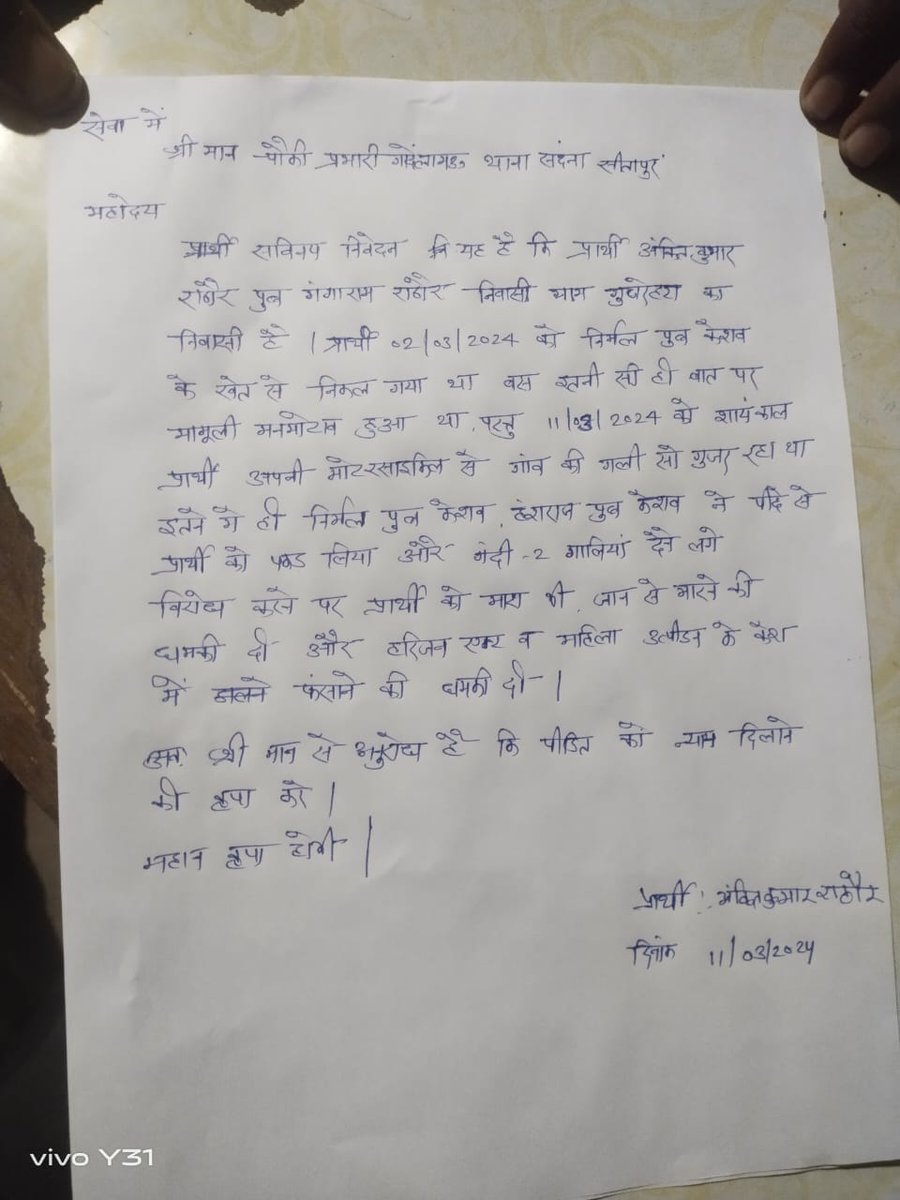 सेवा में
श्री मान चौकी प्रभारी थाना संदना सीतापुर
महोदय
प्रार्थी सविनय निवेदन कि यह है कि प्रार्थी अंकित कुमार
राठौर पुत्र गंगाराम राठौर निवासी ग्राम का
निवासी है | प्रार्थी 02/03/2024 को निर्मल पुत्र केशव
के खेत से निकल गया था बस इतनी सी ही बात पर
मामूली मनमोटाव हुआ था, परन्तु 11/03/2024 को शायंकाल
प्रार्थी अपनी मोटरसाइकिल से गांव की गली से गुजर रहा था
इतने मे ही निर्मल पुत्र केशव, हंशराज पुत्र केशव ने पीछे से
प्रार्थी को पकड लिया और गंदी -2 गालियां देने लगे
विरोध करने पर प्रार्थी को मारा भी, जान से मारने की
धमकी दी और हरिजन एक्ट व महिला उत्पीडन के केश
में डालने फंसाने की धमकी दी |
अतः श्री मान से अनुरोध है कि पीडित को न्याय दिलाने
की कृपा करे |
महान कृपा होगी |
प्रार्थी : अंकित कुमार राठौर
दिनांक 11/03/2024
vivo Y31